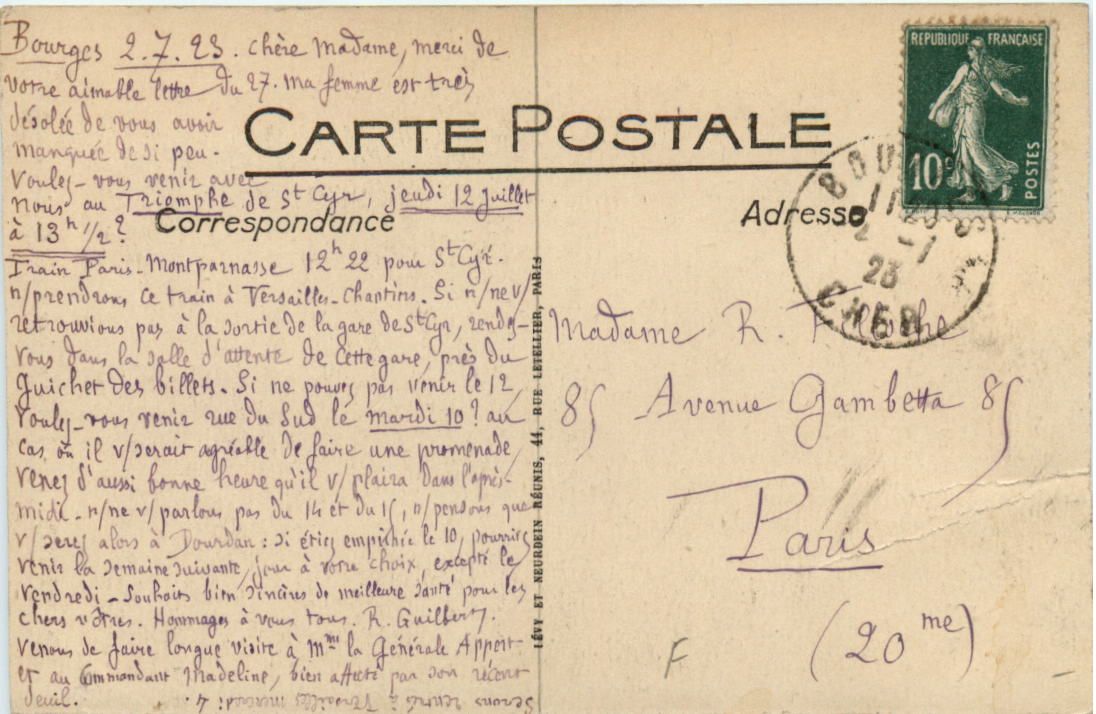 Bourges 2.7.23. Chère Madame, merci de
votre aimable lettre du 27. Ma femme est très
désolée de vous avoir
manquée de si peu.
Voulez-vous venir avec
nous au Triomphe de St Cyr, jeudi 12 Juillet
à 13h 1/2?
Train Paris-Montparnasse 12h22 pour St Cyr.
n/prendrons ce train à Versailles-Chantiers. Si n/ne v/
retrouvions pas à la sortie de la gare de St Cyr, rendez-
vous dans la salle d'attente de cette gare, près du
guichet des billets. Si ne pouvez pas venir le 12,
voulez-vous venir rue du Sud le mardi 10? au
cas où il v/serait agréable de faire une promenade,
venez d'aussi bonne heure qu'il v/ plaira dans l'après-
midi. n/ne v/parlons pas du 14 et du 15, n/pensons que
v/serez alors à Dourdan: si étiez empêchée le 10, pourriez
venir la semaine suivante, jour à votre choix, excepté le
vendredi - Souhaits bien sincères de meilleure santé pour les
chers vôtres. Hommages à vous tous. R. Guilbert.
venons de faire longue visite à Mme la Générale Appert
et au Commandant Madeline, bien affecté par son récent
deuil.
Serons rentrés à Versailles mercredi 4.
CARTE POSTALE
Correspondance
Adresse
LÉVY ET NEURDEIN RÉUNIS, 44, RUE LETELLIER, PARIS
RÉPUBLIQUE FRANÇAISE
10c
POSTES
BOURGES
2 -7
23
CHER
Madame R.
85 Avenue Gambetta 85
Paris
(20me)
F